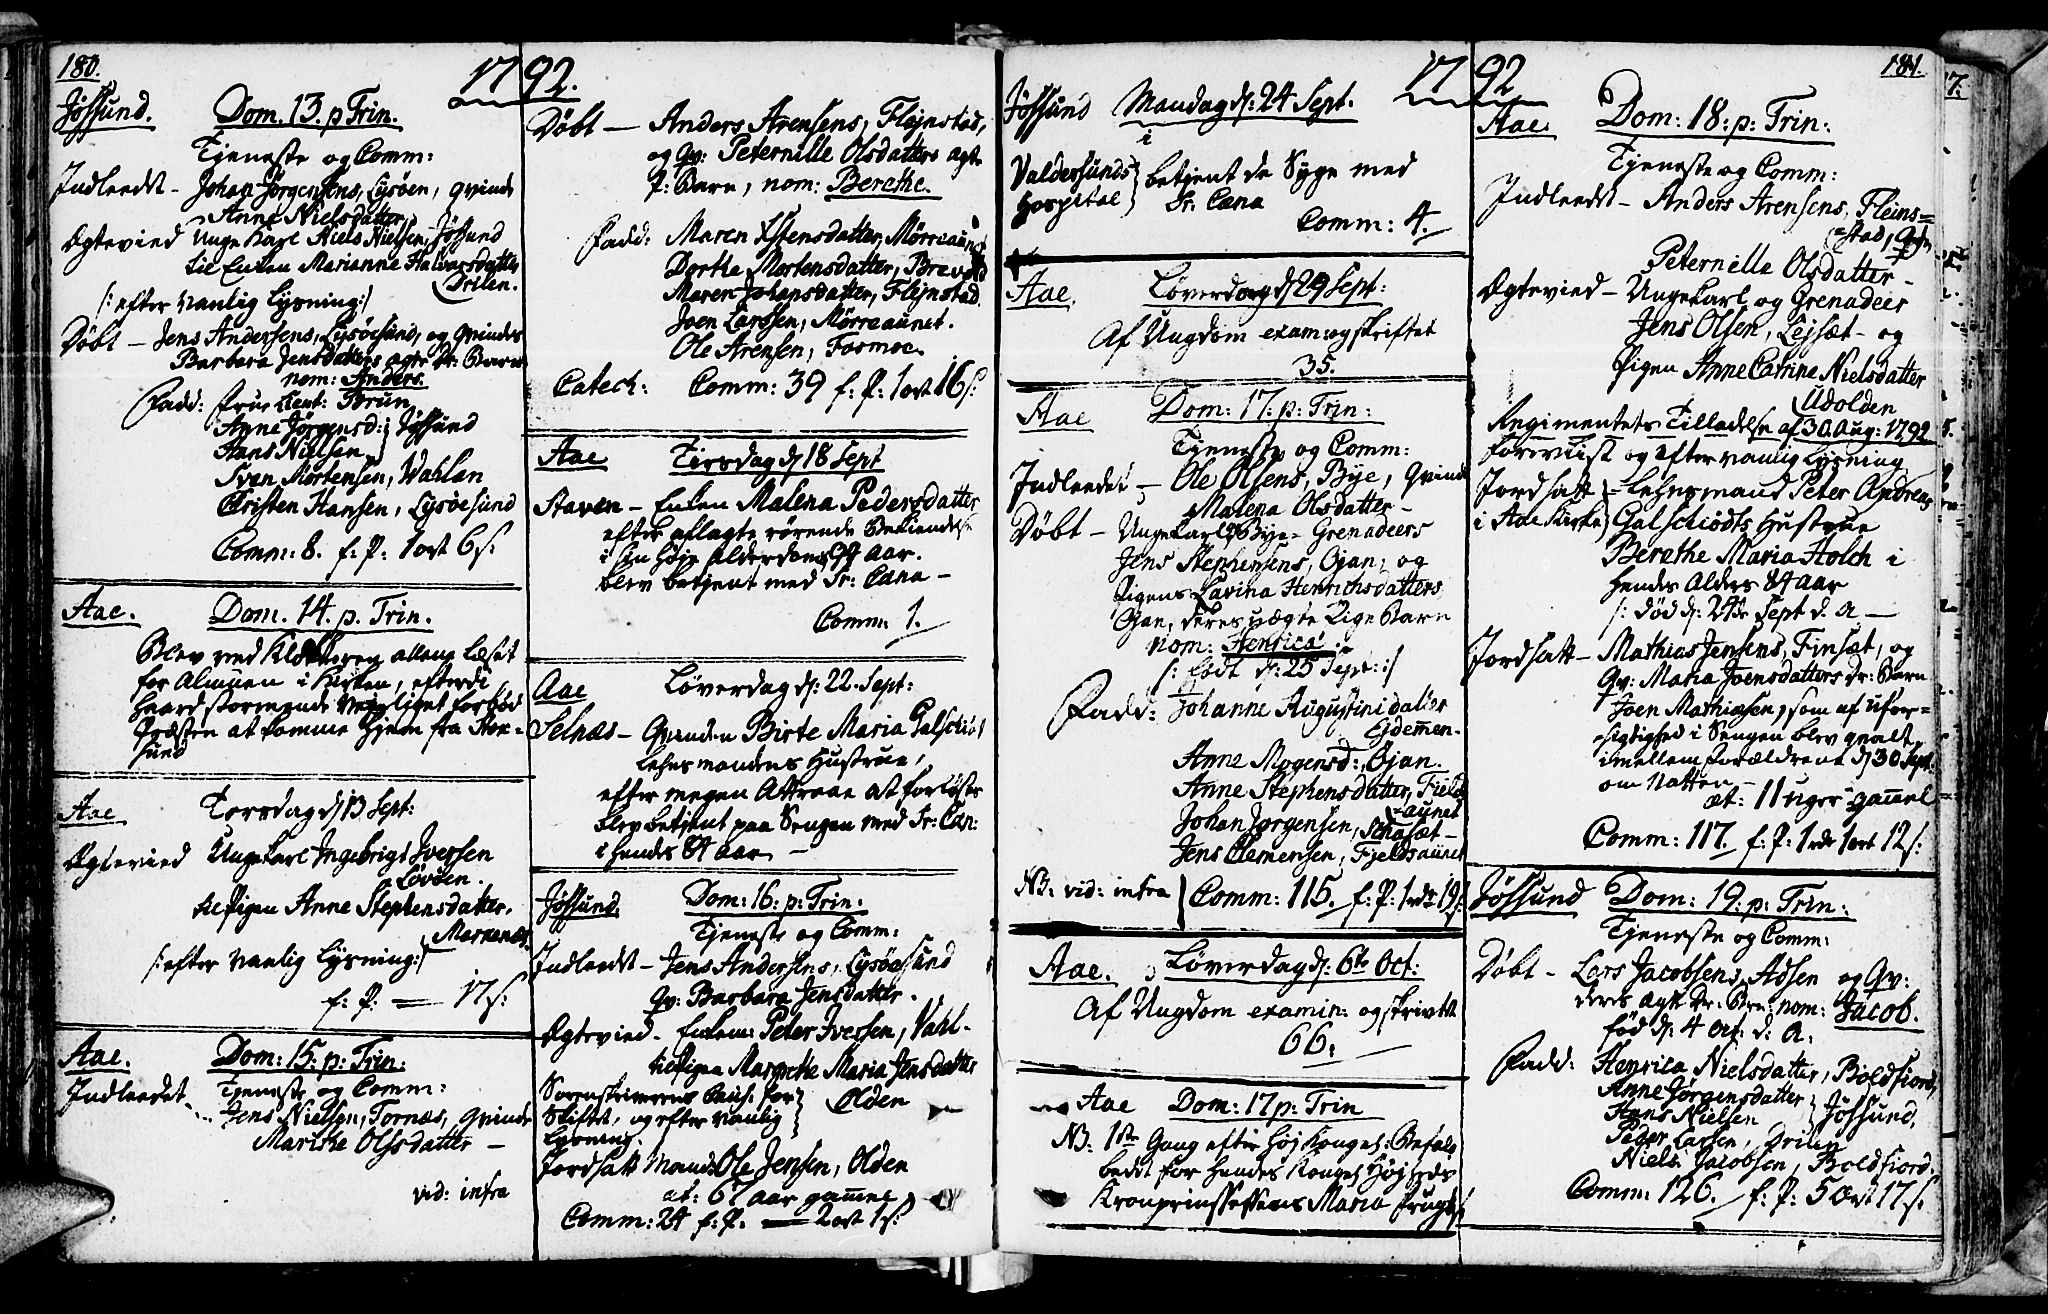 180.
1792.
Jøssund. Dom. 13. p Trin.
Tjeneste og Comm:
Indleedt - Johan Jørgensens, Lysøen, Qvinde
Anne Nielsdatter,
Ægtevied Unge Karl Niels Nielsen, Jøssund
til Enken Marianne Halvorsdatter
Drilen.
/: efter vanlig Lysning :/
Døbt - Jens Andersens, Lysøesund, og Qvindes
Barbara Jensdatters ægte Dr: Barn
nom: Anders.
Fadd: Frue Lieut: Brun
Anne Jørgensd: Jøssund
Hans Nielsen
Sven Mortensen, Wahlan
Christen Hansen, Lysøesund
Comm: 8. f: P: 1 ort 6 s:
Aae. Dom. 14. p. Trin.
Blev ved Klokkeren allene læset
for Almuen i Kirken, efterdi
haard stormende Veirliget forbød
Præsten at komme hjem fra Stor-
sund
Aae Torsdag d 13 Sept:
Ægtevied Ungekarl Ingebrigt Iversen
Lovøen.
til Pigen Anne Stephensdatter.
Marxenæs.
/: efter vanlig Lysning :/
f: P. — 17 s:
Aae. Dom: 15: p: Trin:
Tjeneste og Comm:
Indleedet - Jens Nielsen, Tornæs, Qvinde
Marithe Olsdatter -
vid: infra
Døbt - Anders Arensens, Flejnstad,
og Qv: Peternille Olsdatters ægte
P: Barn, nom: Berethe.
Fadd: Maren Estensdatter, Mørreaunet
Dorthe Mortensdatter, Brevold
Maren Johansdatter, Flejnstad.
Joen Larssen, Mørreaunet.
Ole Arensen, Fosmoe.
Catech: Comm: 39 f: P: 1 ort 16 s:
Aae Tirsdag d 18 Sept
Staven - Enken Malena Pedersdatter
efter aflagte rørende Bekiendelse
i sin høje Alderdom 99 aar.
blev betjent med Sr: Cæna -
Comm: 1.
Aae Løverdag d: 22. Sept:
Selnæs - Qvinden Birte Maria Galschiøt
Lehnsmandens Hustrue,
efter megen Attraae at forløses
blev betjent paa Sengen med Sr: Cæn:
i hendes 84 aar -
Jøssund. Dom: 16: p: Trin:
Tjeneste og Comm:
Indleedet - Jens Andersens, Lysøesund
Qv: Barbara Jensdatter.
Ægtevied. Enkem: Peter Iversen, Vahl-
til Pigen Margrethe Maria Jensdatter
Olden
Sorenskriverens Caus: for
Skiftet, og efter vanlig
Lysning.
Jordsatt Mand: Ole Jensen, Olden
æt: 67 aar gamel
Comm: 24 f: P. — 2 ort 1 s:
1792
181.
Jøssund Mandag d: 24 Sept.
i
Valdersunds betjent de Syge med
Hospital Sr: Cæna
Comm: 4.
Aae. Løverdag d 29 Sept:
Af Ungdom exam: og skriftet
35.
Aae Dom: 17: p: Trin:
Tjeneste og Comm:
Indleedet - Ole Olsens, Bye, Qvinde
Malena Olsdatter -
Døbt - Ungekarl Bye- Grenadeers
Jens Stephensens, Ojan, og
Pigens Lavina Henrichsdatters
Ojan, deres uægte Pige Barn
nom: Henrica
/: født d: 25 Sept: :/
Fadd: Johanne Augustini datter
Ejdemen.
Anne Mogensd: Ojan.
Anne Stephensdatter, Field-
aunet
Johan Jørgensen, Schasæt -
Jens Clemensen, Fjeldsaunet
NB: vid: infra Comm: 115. f: P: 1 rdr 19 s:
Aae. Løverdag d: 6te Oct:
Af Ungdom examin: og skrivtet
66.
Aae Dom: 17 p: Trin
NB: 1ste Gang efter Høj Kongel: Befal:
bedet for hendes Kongel Højheds
Kronprinsessens Maria Frugts:
Aae. Dom: 18: p: Trin:
Tjeneste og Comm:
Indleedt - Anders Arensens, Fleins=
=stad, Qvin:
Peternille Olsdatter -
Ægtevied - Ungekarl og Grenadeer
Jens Olsen, Lejsæt - og
Pigen Anne Catrina Nielsdatter
Udolden
Regimentets Tilladelse af 30 Aug: 1792
foreviist og efter vanlig Lysning
Jordsatt - Lehnsmand Peter Andreas
i Aae Kirke Galschiødts Hustrue
Berethe Maria Holch i
hendes Alders 84 aar
/: død d: 24de Sept d. A -
Jordsatt - Mathias Jensens, Finsæt, og
Qv: Maria Joensdatters Dr: Barn
Joen Mathiasen, som af ufor-
sigtighed i Sengen blev qvalt
imellem Forældrene d 30 Sept:
om Natten -
æt: 11 uger gamel
Comm: 117. f: P: 1 rdr 1 ort 12 s:
Jøssund Dom: 19: p: Trin:
Tjeneste og Comm:
Døbt - Lars Jacobsens, Adsen og Qv:
deres ægte Dr: Brn: nom: Jacob.
fød d: 4 Oct: d: A:
Fadd: Henrica Nielsdatter, Boldfiord,
Anne Jørgensdatter
Hans Nielsen Jøssund,
Peder Larsen, Drilen
Niels Jacobsen, Boldfiord.
Comm: 126. f: P: 5 Ort 17 s: